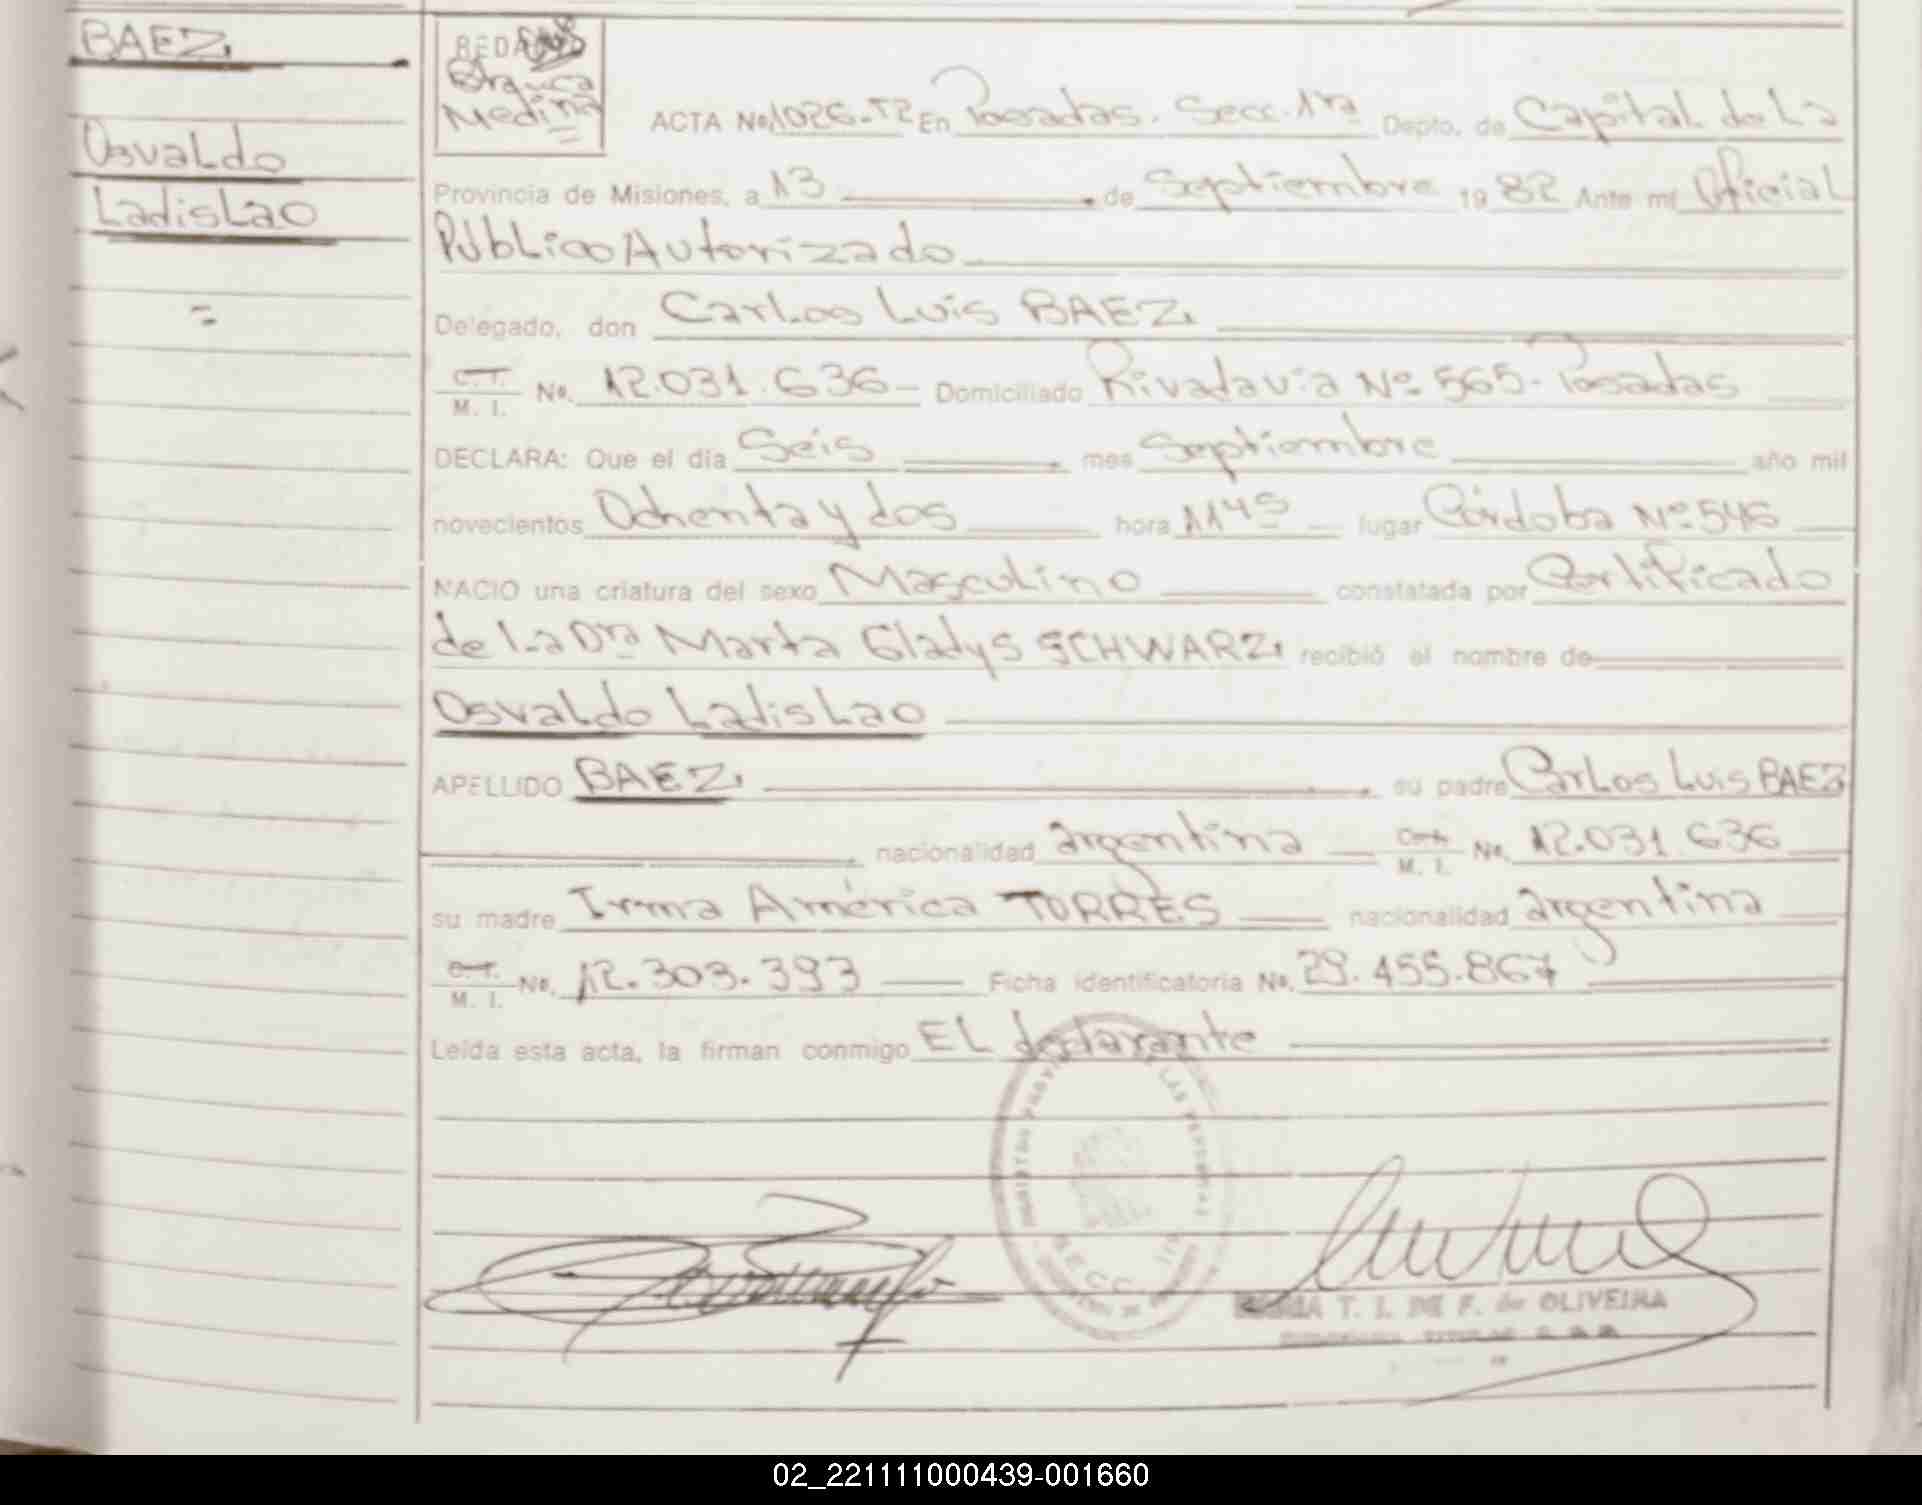 BAEZ
Osvaldo
Ladislao
=
REDA
Orquca
Medina
=
ACTA No. 1026-T2 En Posadas. Secc. 1ra Depto. de Capital de La
Provincia de Misiones, a 13 de Septiembre 19 82 Ante mí Oficial
Público Autorizado
Delegado, don Carlos Luis BAEZ
C.T.
M. I. No. 12.031.636 - Domiciliado Rivadavia Nº 565 - Posadas
DECLARA: Que el día Seis mes Septiembre año mil
novecientos Ochenta y dos hora 11 45 lugar Córdoba Nº 546
NACIO una criatura del sexo Masculino constatada por Certificado
de La Dra Marta Gladys SCHWARZ recibió el nombre de
Osvaldo Ladislao
APELLIDO BAEZ su padre Carlos Luis BAEZ
nacionalidad argentina M. I. No. 12.031.636
su madre Irma América TORRES nacionalidad argentina
C.T.
M. I. No. 12.303.393 Ficha identificatoria No. 29.455.867
Leída esta acta, la firman conmigo EL declarante
DE LAS PERSONAS
SECC. 1ra
T. I. DE F. de OLIVEIRA
02_221111000439-001660